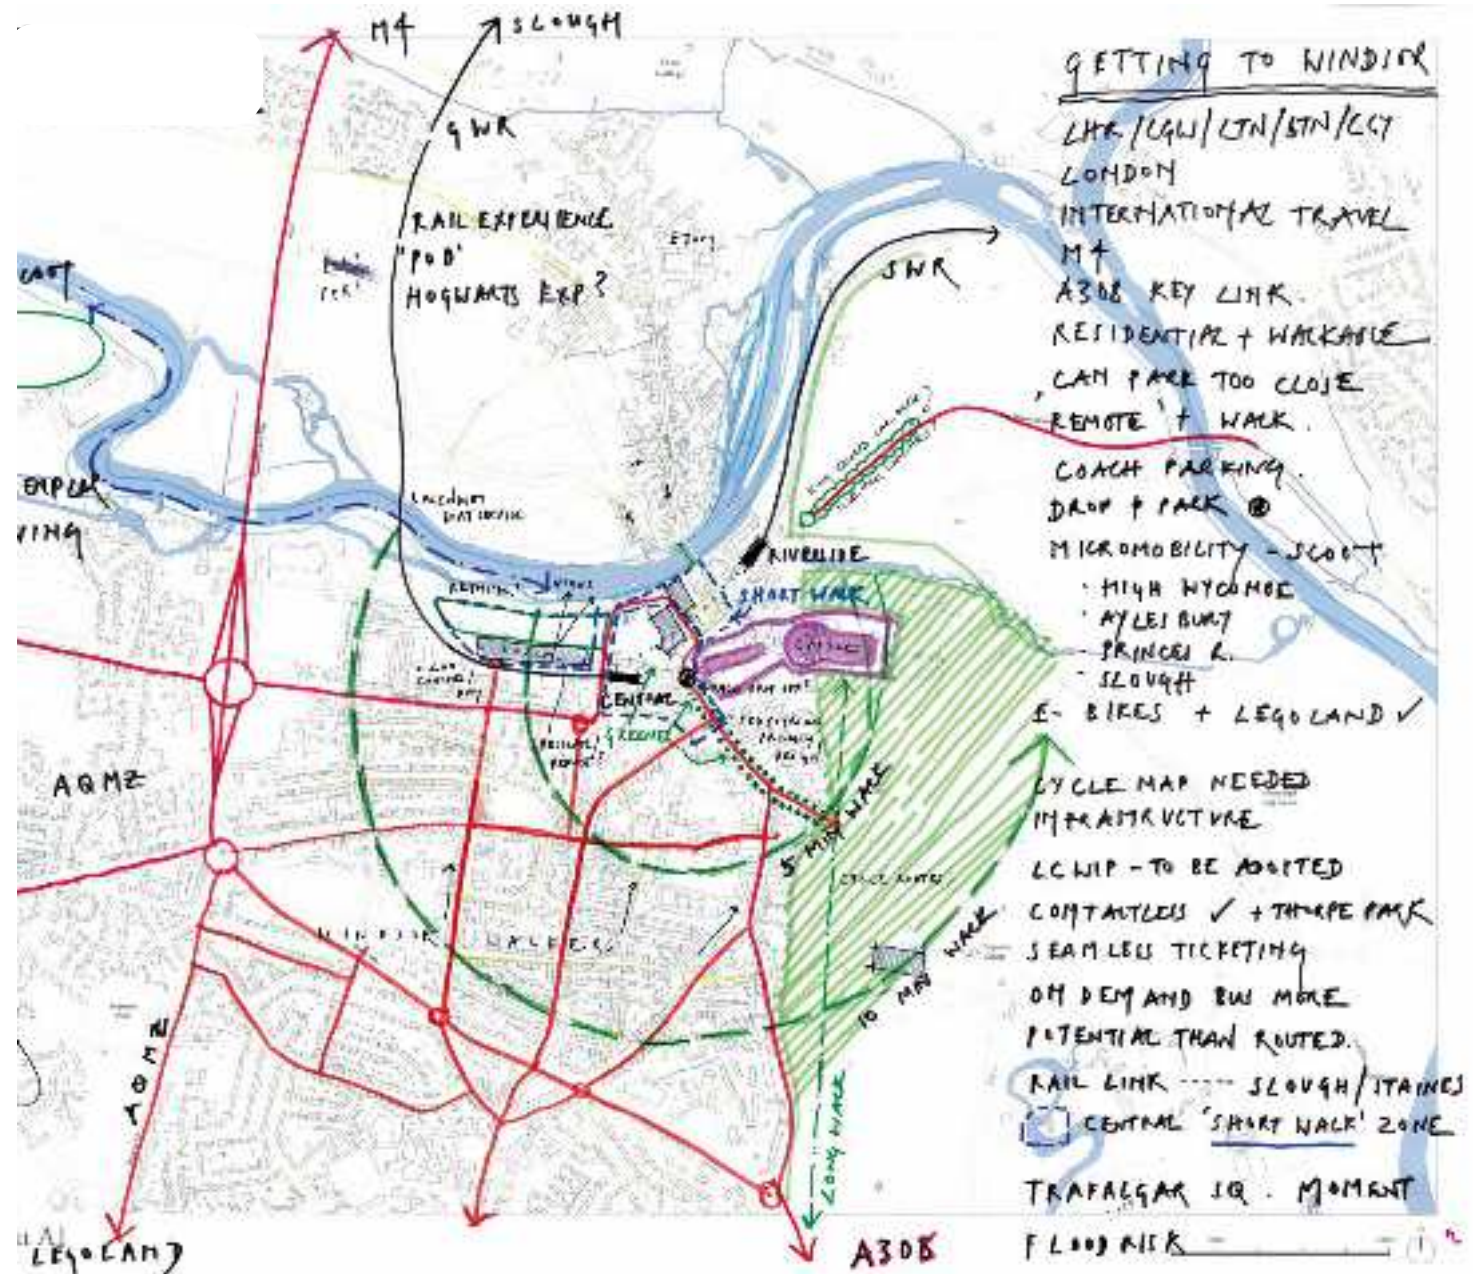 M4
SLOUGH
GWR
RAIL EXPERIENCE
"POD"
HOGWARTS EXP?
ETON
SWR
RIVERSIDE
SHORT WALK
VIEWS
CASTLE
CENTRAL
GREENER
5 MIN WALK
CYCLE ROUTES
WINDSOR WALKERS
10 MIN WALK
LONG WALK
AQMZ
AQMZ
LEGOLAND
A308
GETTING TO WINDSOR
LHR/LGW/LTN/STN/LCY
LONDON
INTERNATIONAL TRAVEL
M4
A308 KEY LINK.
RESIDENTIAL + WALKABLE
CAN PARK TOO CLOSE
'REMOTE' + WALK.
COACH PARKING.
DROP + PARK
MICROMOBILITY - SCOOT
· HIGH WYCOMBE
· AYLESBURY
· PRINCES R.
· SLOUGH
E-BIKES + LEGOLAND ✓
CYCLE MAP NEEDED
INFRASTRUCTURE
LCWIP - TO BE ADOPTED
CONTACTLESS ✓ + THORPE PARK
SEAMLESS TICKETING
ON DEMAND BUS MORE
POTENTIAL THAN ROUTED.
RAIL LINK ----- SLOUGH/STAINES
CENTRAL 'SHORT WALK' ZONE
TRAFALGAR SQ. MOMENT
FLOOD RISK